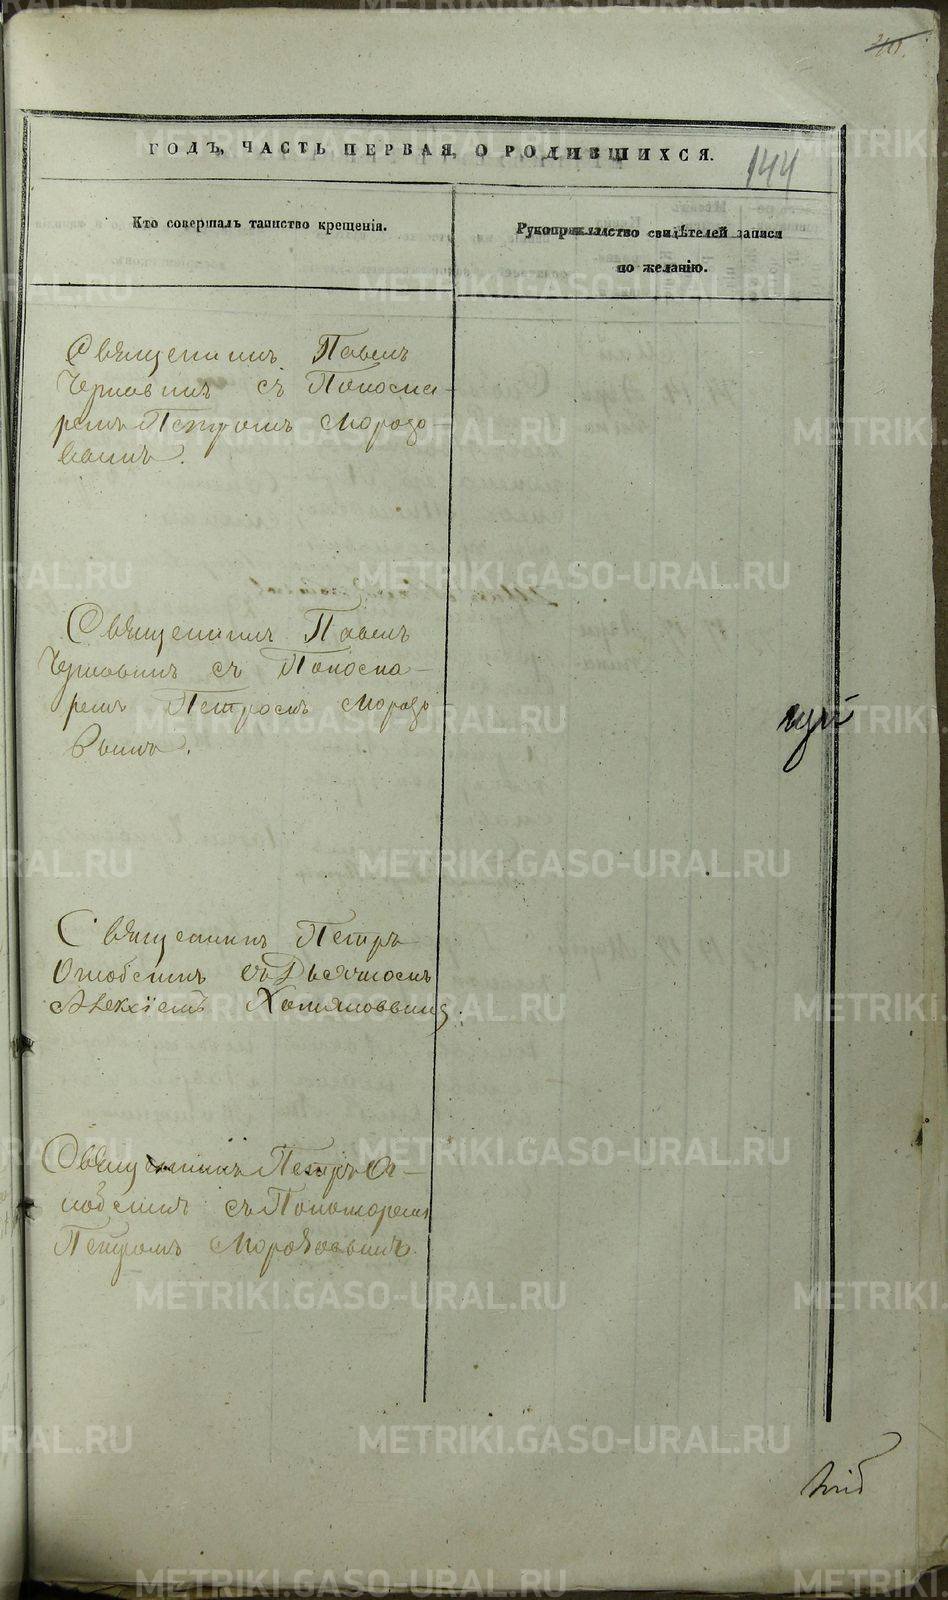 144
ГОДЪ, ЧАСТЬ ПЕРВАЯ, О РОДИВШИХСЯ.
Кто совершалъ таинство крещенія.
Рукоприкладство свидѣтелей записи
по желанію.
Священникъ Павелъ
Черновинъ съ Понома-
ремъ Петромъ Морозо-
вымъ.
Священникъ Павелъ
Черновинъ съ Понома-
ремъ Петромъ Морозо
вымъ.
Священникъ Петръ
съ Дьячкомъ
Алексіемъ
Священникъ Петръ
съ Пономаремъ
Петромъ Морозовымъ.
METRIKI.GASO-URAL.RU